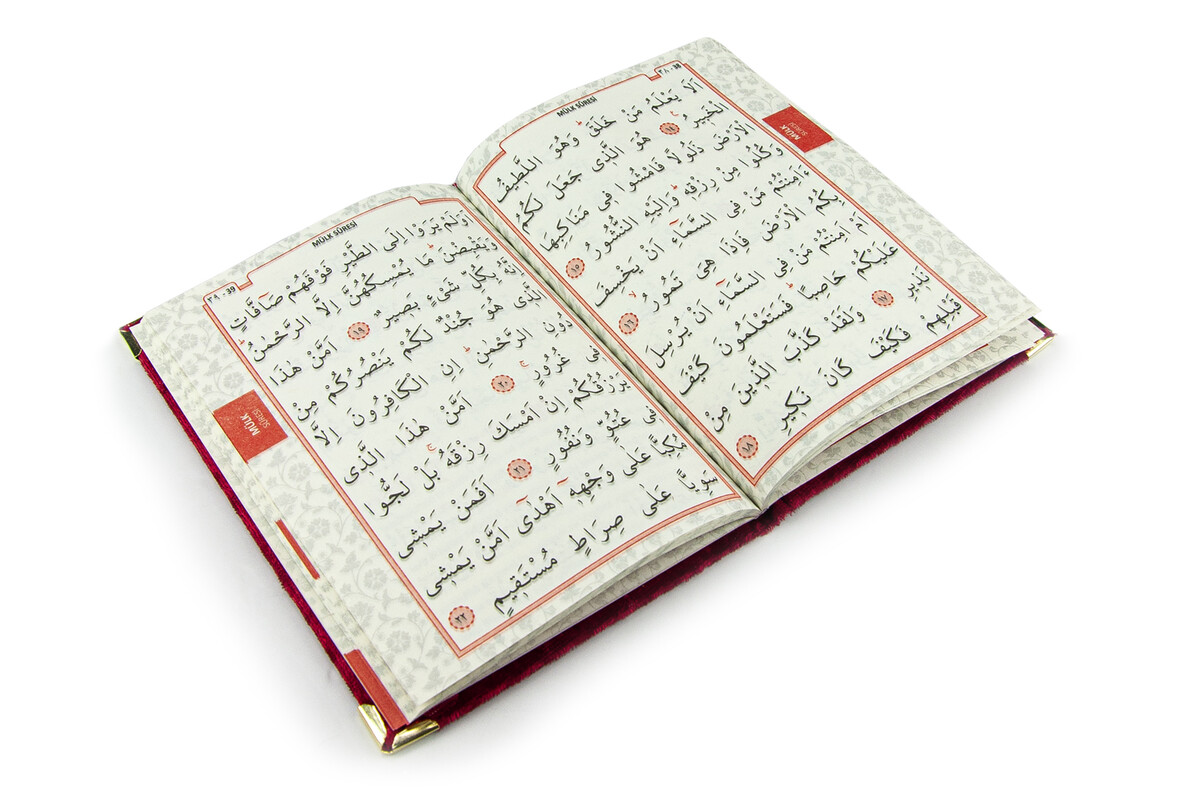 ٣٨ - 38
MÜLK SÛRESİ
MÜLK
SÛRESİ
اَلَا يَعْلَمُ مَنْ خَلَقَۜ وَهُوَ اللَّطٖيفُ
الْخَبٖيرُ ١٤ هُوَ الَّذٖى جَعَلَ لَكُمُ
الْاَرْضَ ذَلُولًا فَامْشُوا فٖى مَنَاكِبِهَا
وَكُلُوا مِنْ رِزْقِهٖۜ وَاِلَيْهِ النُّشُورُ ١٥
ءَاَمِنْتُمْ مَنْ فِى السَّمَٓاءِ اَنْ يَخْسِفَ
بِكُمُ الْاَرْضَ فَاِذَا هِىَ تَمُورُ ١٦
اَمْ اَمِنْتُمْ مَنْ فِى السَّمَٓاءِ اَنْ يُرْسِلَ
عَلَيْكُمْ حَاصِبًاۜ فَسَتَعْلَمُونَ كَيْفَ
نَذٖيرِ ١٧ وَلَقَدْ كَذَّبَ الَّذٖينَ مِنْ
قَبْلِهِمْ فَكَيْفَ كَانَ نَكٖيرِ ١٨
٣٩ - 39
MÜLK SÛRESİ
MÜLK
SÛRESİ
اَوَلَمْ يَرَوْا اِلَى الطَّيْرِ فَوْقَهُمْ صَٓافَّاتٍ
وَيَقْبِضْنَۜ مَا يُمْسِكُهُنَّ اِلَّا الرَّحْمٰنُۜ
اِنَّهُ بِكُلِّ شَىْءٍ بَصٖيرٌ ١٩ اَمَّنْ هٰذَا
الَّذٖى هُوَ جُنْدٌ لَكُمْ يَنْصُرُكُمْ مِنْ
دُونِ الرَّحْمٰنِۜ اِنِ الْكَافِرُونَ اِلَّا
فٖى غُرُورٍ ٢٠ اَمَّنْ هٰذَا الَّذٖى
يَرْزُقُكُمْ اِنْ اَمْسَكَ رِزْقَهُۚ بَلْ لَجُّوا
فٖى عُتُوٍّ وَنُفُورٍ ٢١ اَفَمَنْ يَمْشٖى
مُكِبًّا عَلٰى وَجْهِهٖٓ اَهْدٰٓى اَمَّنْ يَمْشٖى
سَوِيًّا عَلٰى صِرَاطٍ مُسْتَقٖيمٍ ٢٢